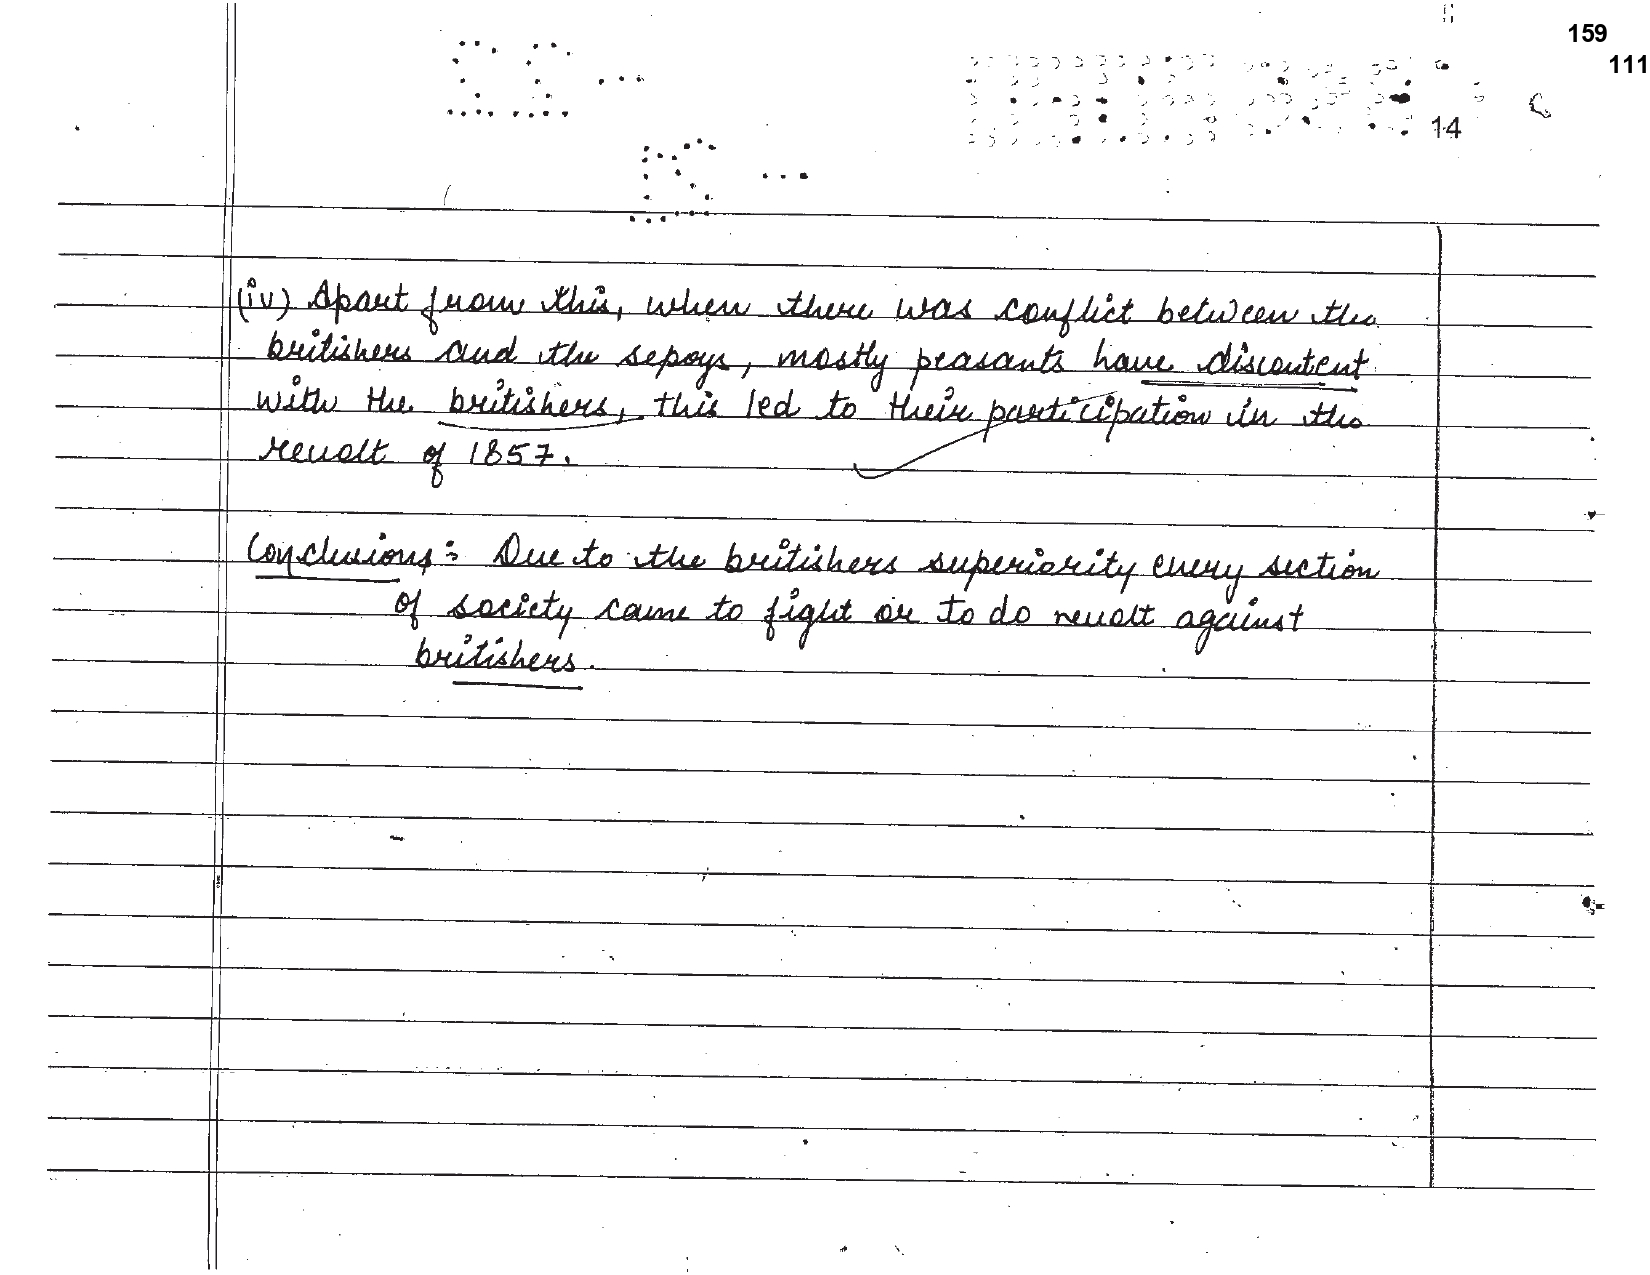 159
111
14
(iv) Apart from this, when there was conflict between the
britishers and the sepoys, mostly peasants have discontent
with the britishers, this led to their participation in the
revolt of 1857.
Conclusions: Due to the britishers superiority every section
of society came to fight or to do revolt against
britishers.